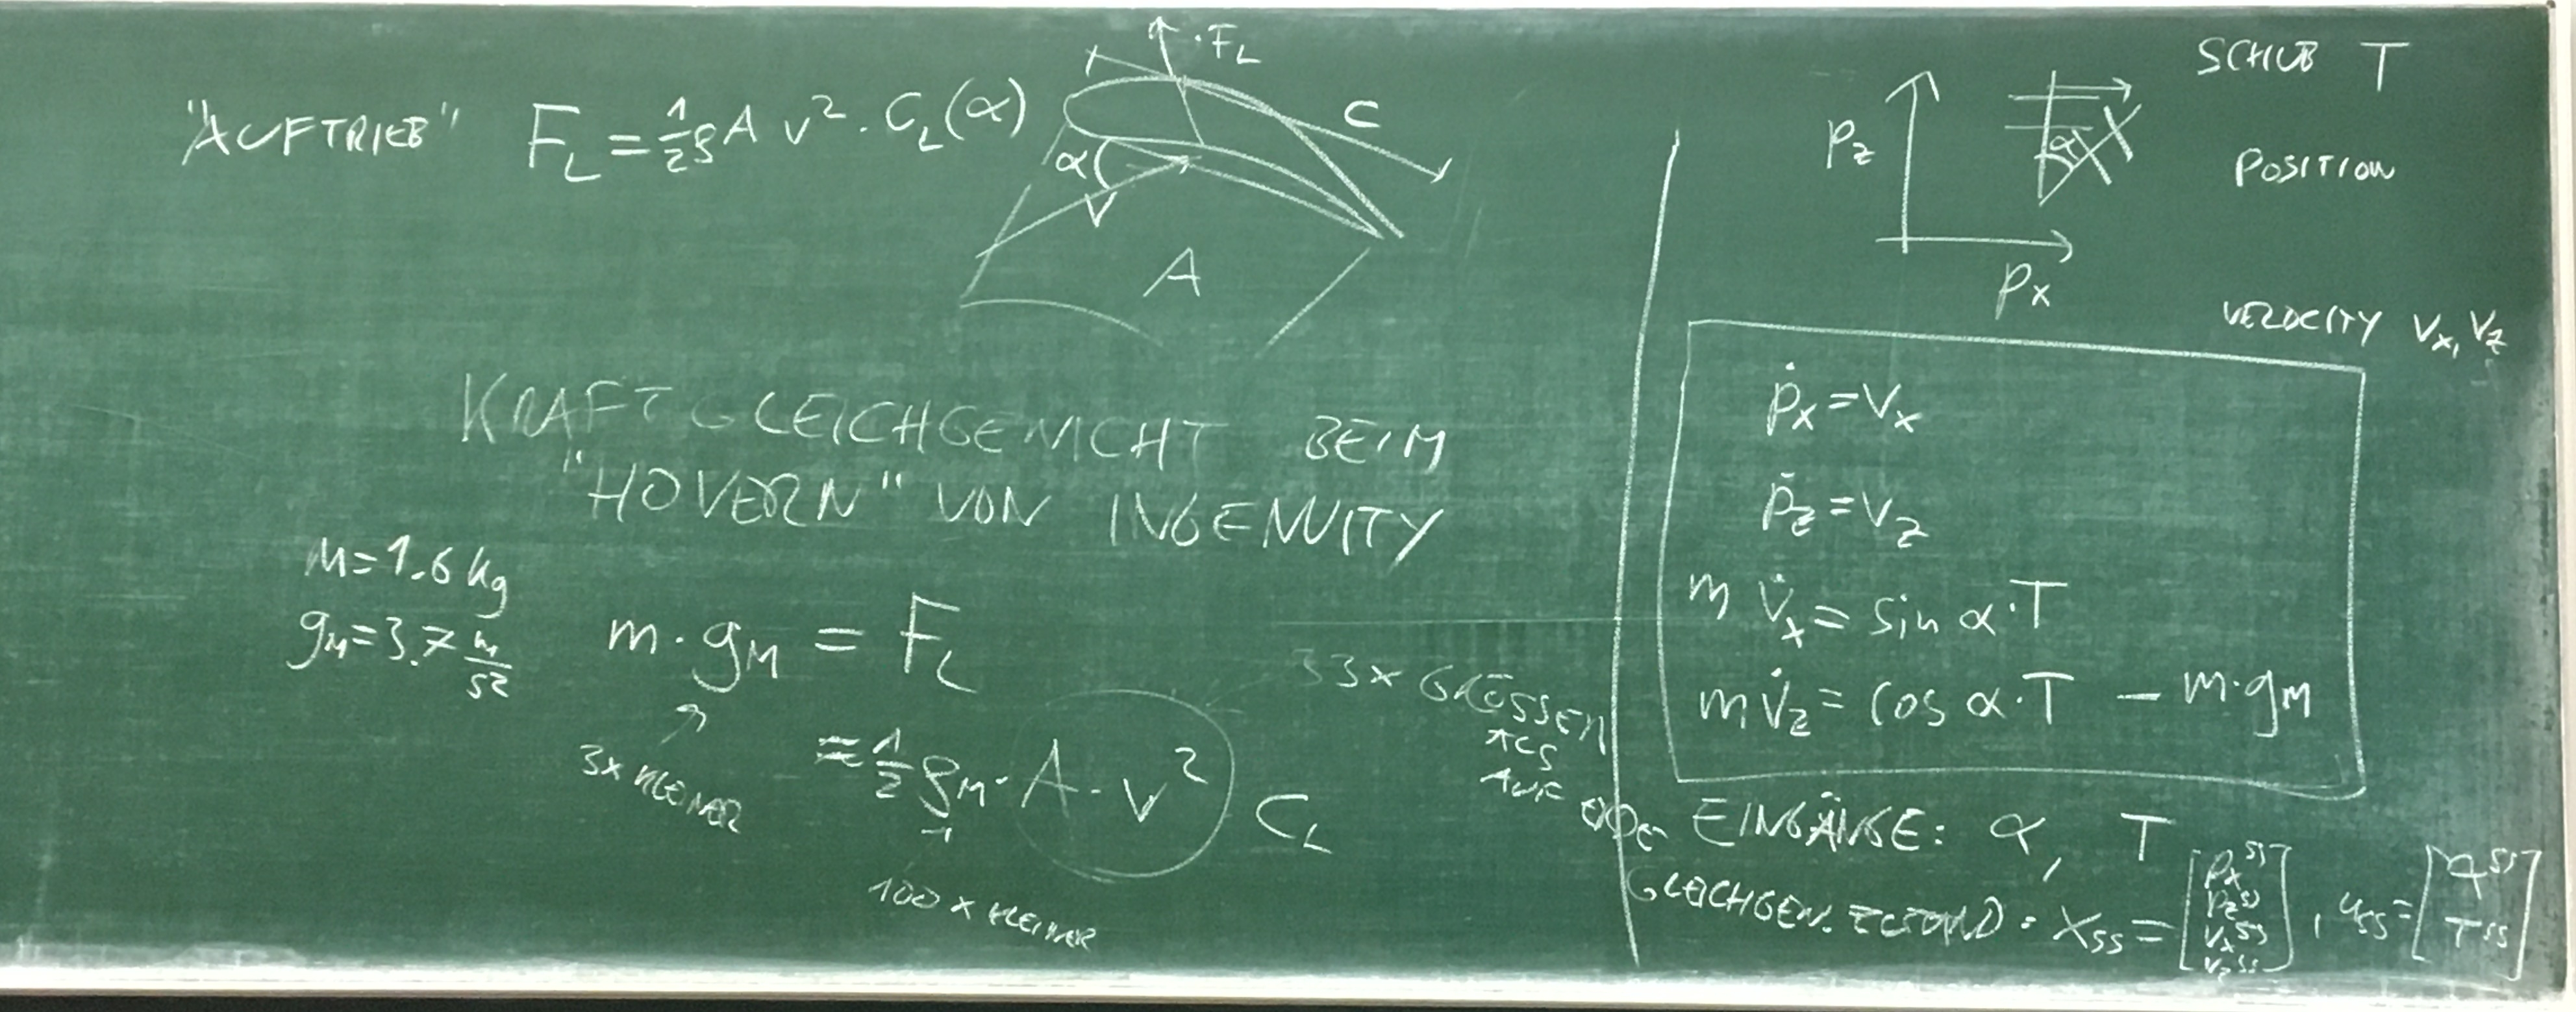 "AUFTRIEB" F_L = 1/2 ρ A v² · C_L(α)
F_L
C
α
V
A
KRAFTGLEICHGEWICHT BEIM
"HOVERN" VON INGENUITY
M = 1.6 kg
g_M = 3.7 m/s²
m · g_M = F_L
3x KLEINER
≈ 1/2 ρ_M · A · v² C_L
100 x KLEINER
33x GRÖSSER
ALS
AUF ERDE
SCHUB T
P_z
α
POSITION
P_x
VELOCITY V_x, V_z
ṗ_x = V_x
ṗ_z = V_z
m v̇_x = sin α · T
m v̇_z = cos α · T − m · g_M
EINGÄNGE: α, T
GLEICHGEW. ZUSTAND: X_ss = [p_x^ss p_z^ss v_x^ss v_z^ss], u_ss = [α^ss T^ss]